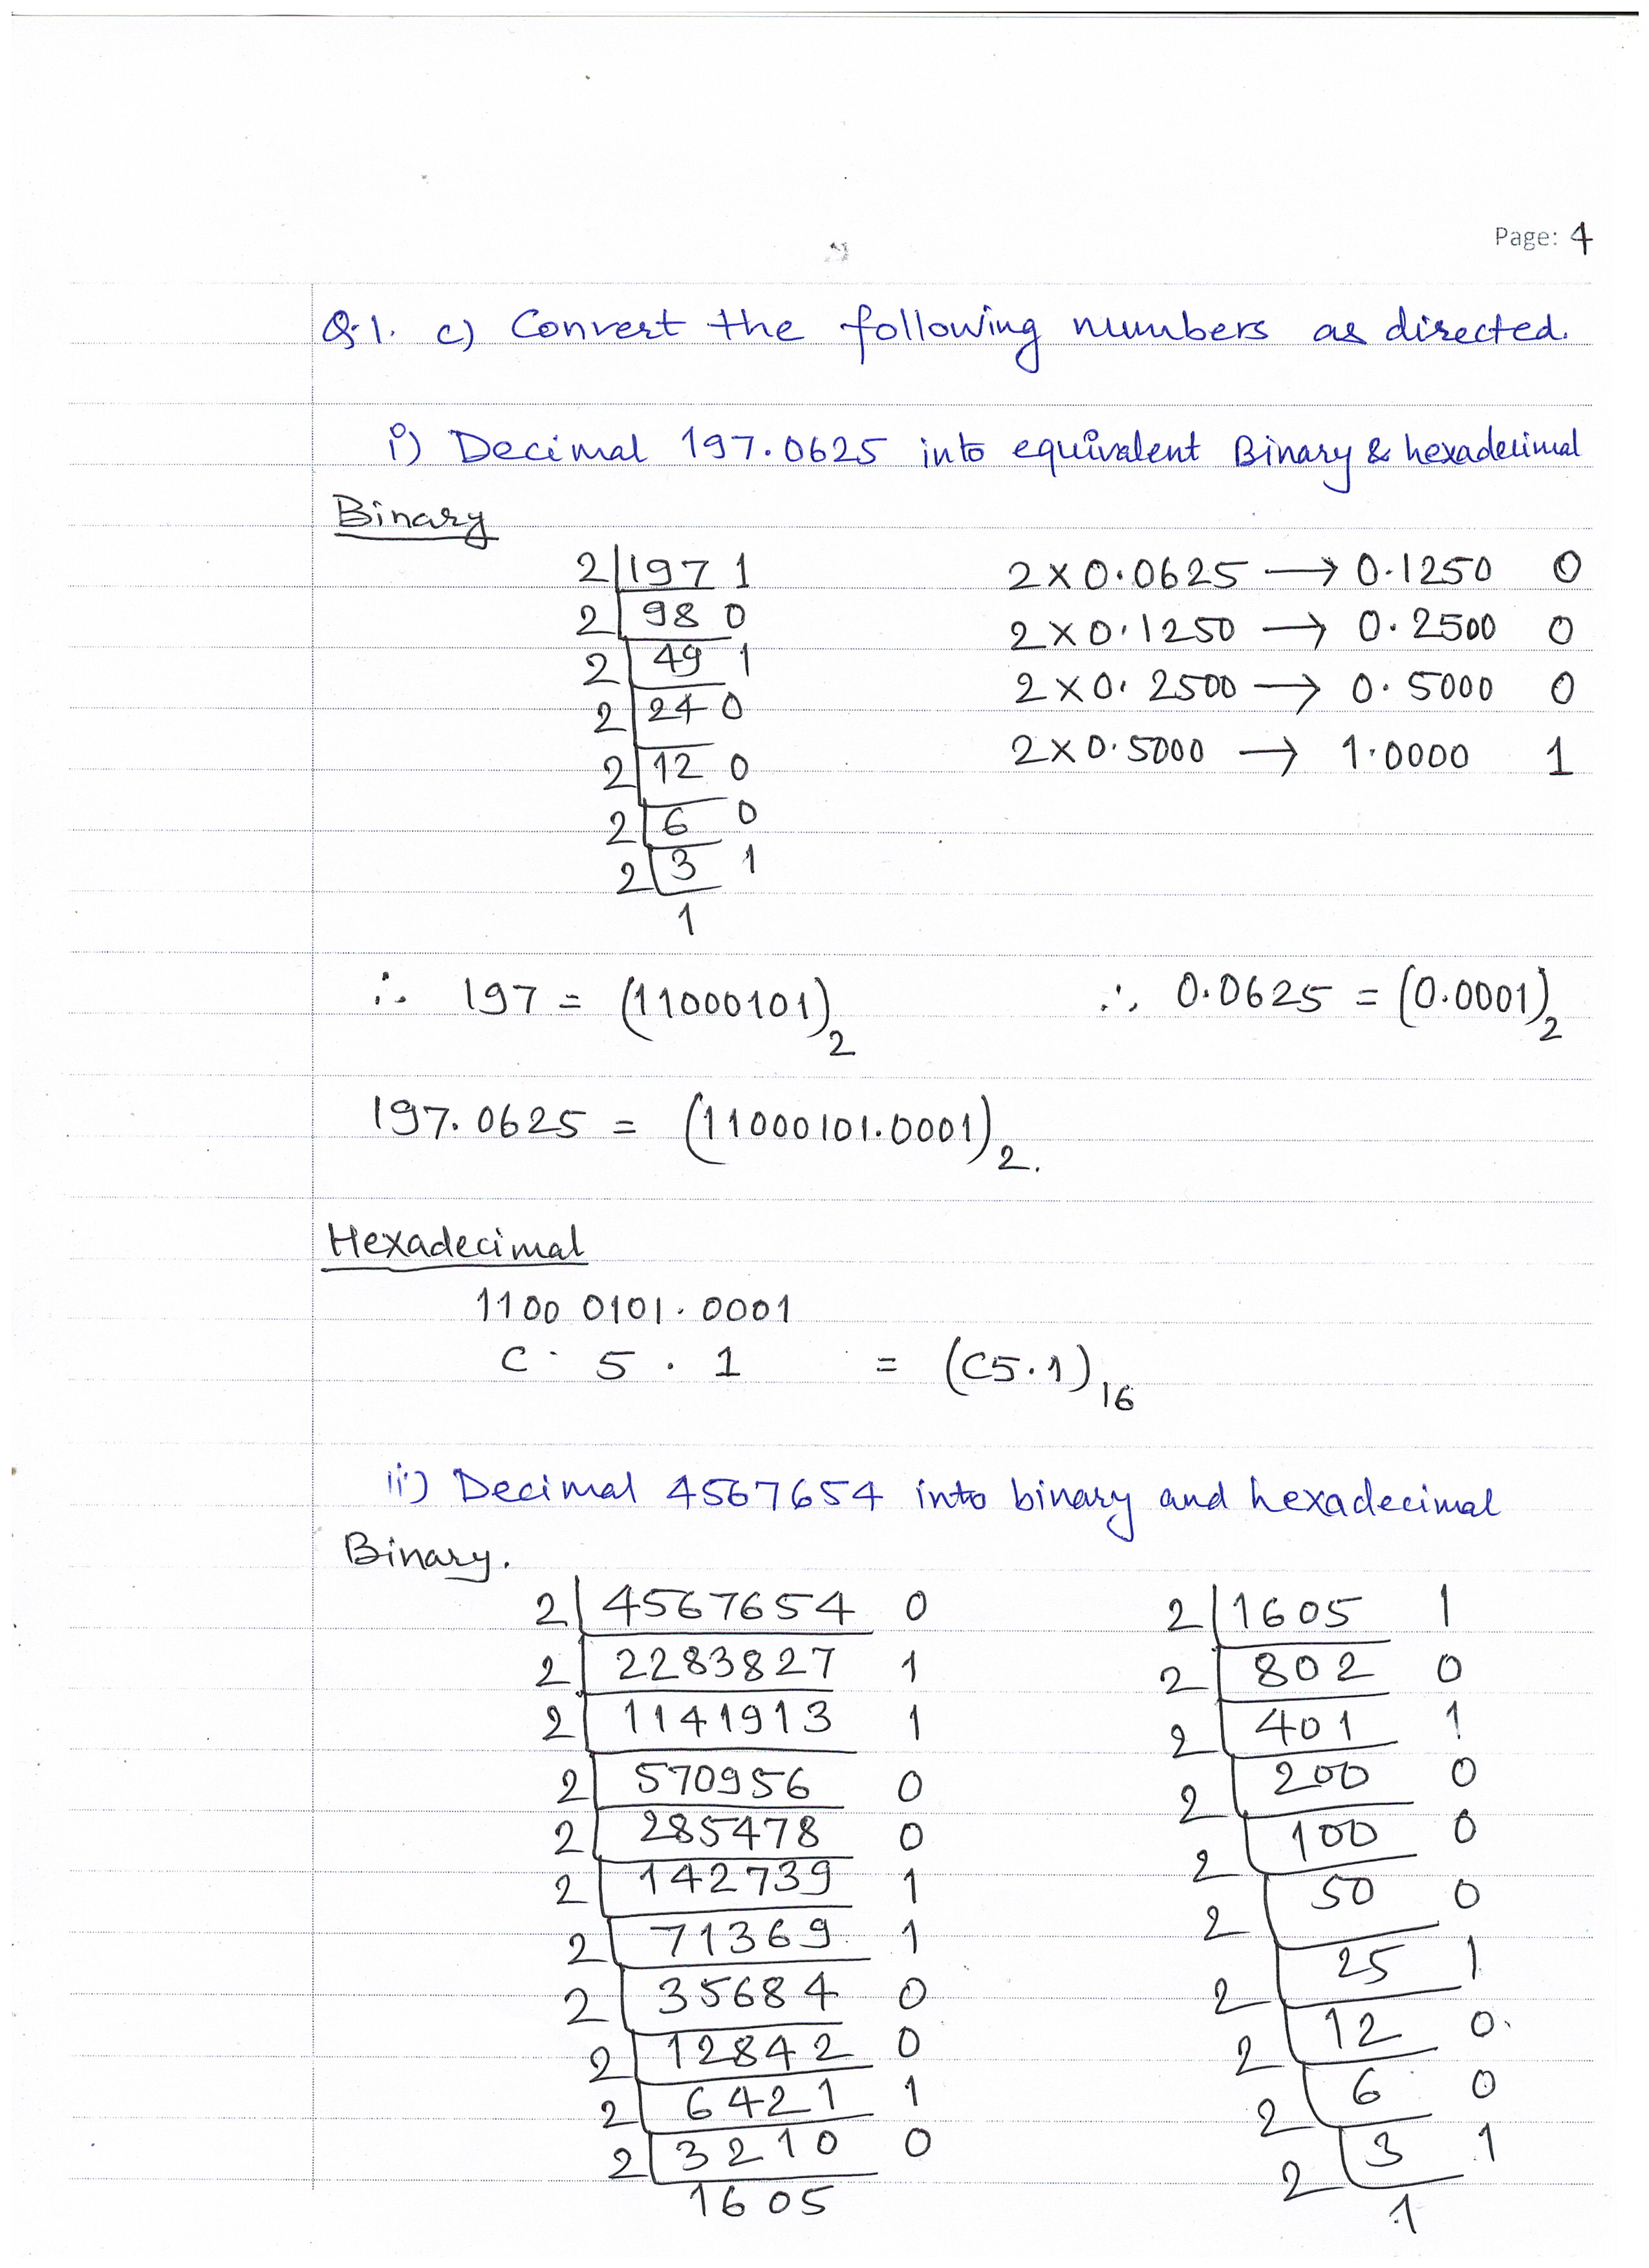 Page: 4
Q.1. c) Convert the following numbers as directed.
i) Decimal 197.0625 into equivalent Binary & hexadecimal
Binary
2 | 197 1
2 | 98 0
2 | 49 1
2 | 24 0
2 | 12 0
2 | 6 0
2 | 3 1
1
2 × 0.0625 → 0.1250 0
2 × 0.1250 → 0.2500 0
2 × 0.2500 → 0.5000 0
2 × 0.5000 → 1.0000 1
∴ 197 = (11000101)2
∴ 0.0625 = (0.0001)2
197.0625 = (11000101.0001)2.
Hexadecimal
1100 0101.0001
C . 5 . 1 = (C5.1)16
ii) Decimal 4567654 into binary and hexadecimal
Binary.
2 | 4567654 0
2 | 2283827 1
2 | 1141913 1
2 | 570956 0
2 | 285478 0
2 | 142739 1
2 | 71369 1
2 | 35684 0
2 | 12842 0
2 | 6421 1
2 | 3210 0
1605
2 | 1605 1
2 | 802 0
2 | 401 1
2 | 200 0
2 | 100 0
2 | 50 0
2 | 25 1
2 | 12 0.
2 | 6 0
2 | 3 1
1